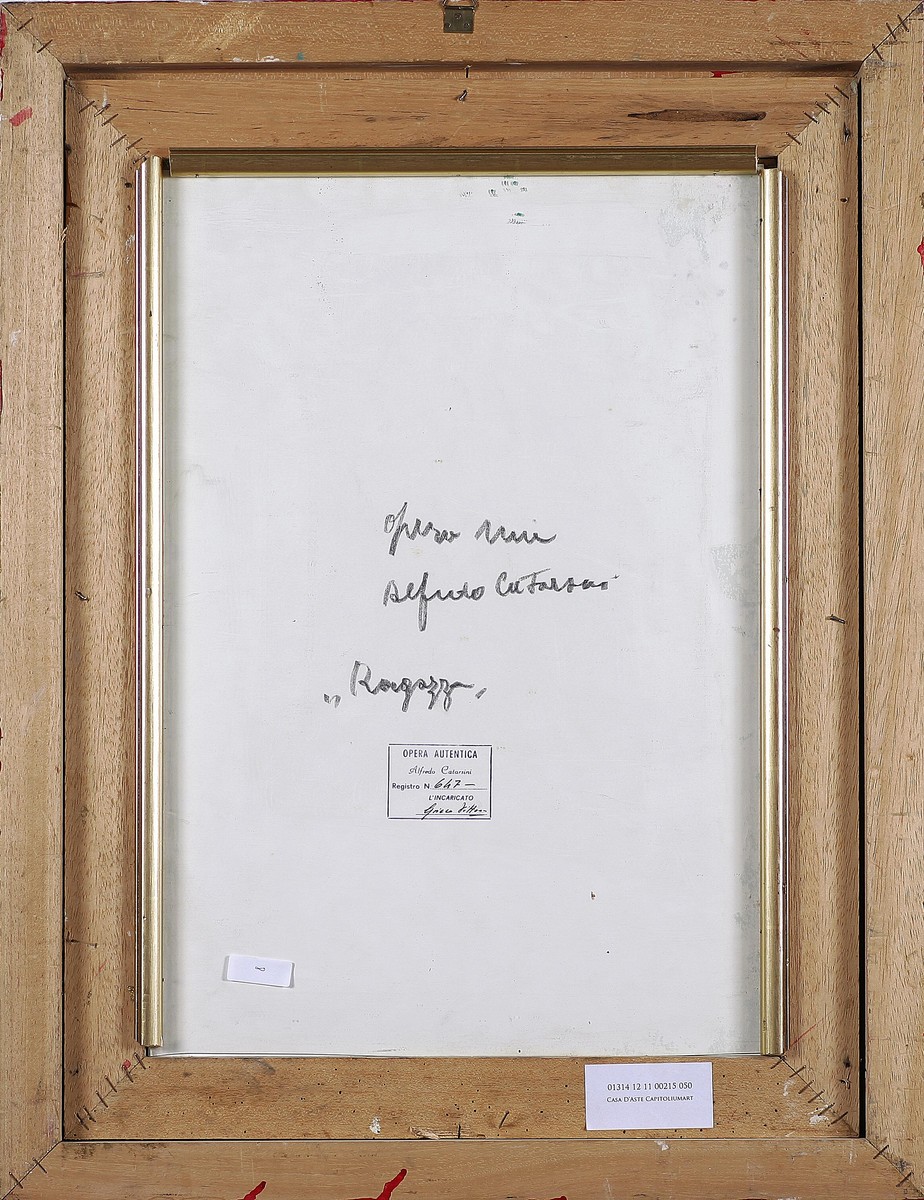 opera mia
Alfredo Catarsini
"Ragazz"
OPERA AUTENTICA
Alfredo Catarsini
Registro N 647 —
L'INCARICATO
01314 12 11 00215 050
CASA D'ASTE CAPITOLIUMART